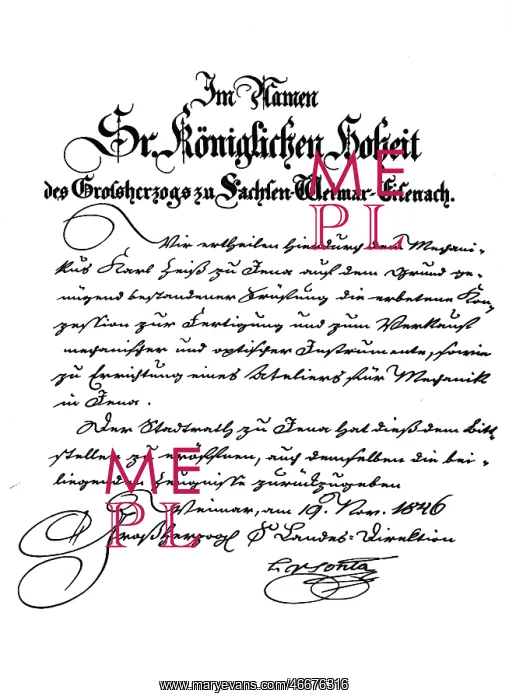 Im Namen
Sr. Königlichen Hoheit
des Grossherzogs zu Sachsen-Weimar-Eisenach.
Wir ertheilen hierdurch dem Mechani-
kus Karl Zeiß zu Jena auf dem Grund ge-
nügend bestandener Prüfung die erbetene Kon-
zession zur Fertigung und zum Verkauf
mechanischer und optischer Instrumente, sowie
zu Errichtung eines Ateliers für Mechanik
in Jena.
Der Stadtrath zu Jena hat dieß dem Bitt-
steller zu eröffnen, auch demselben die bei-
liegenden Zeugnisse zurückzugeben
Weimar, am 19. Nov. 1846
Großherzogl S Landes-Direktion
ME
PL
ME
PL
www.maryevans.com/46676316